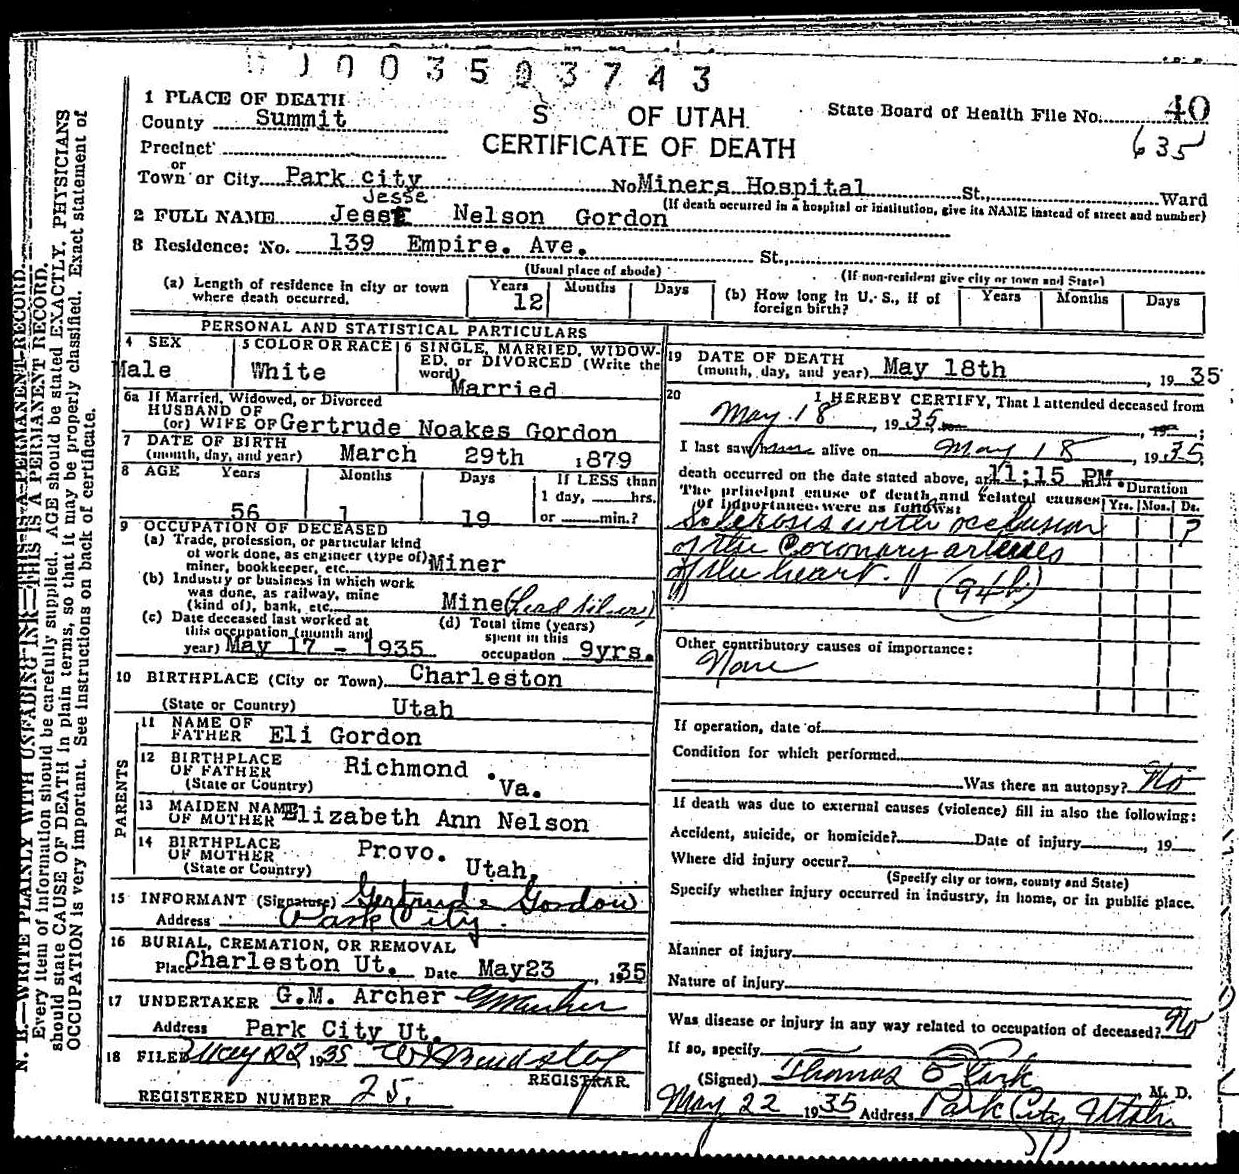 0003503743
1 PLACE OF DEATH
County Summit
S OF UTAH
State Board of Health File No. 40
CERTIFICATE OF DEATH
635
Precinct
or
Town or City Park city No Miners Hospital St. Ward
(If death occurred in a hospital or institution, give its NAME instead of street and number)
Jesse
2 FULL NAME Jess Nelson Gordon
3 Residence: No. 139 Empire. Ave. St.,
(Usual place of abode) (If non-resident give city or town and State)
(a) Length of residence in city or town where death occurred. Years 12 Months Days
(b) How long in U. S., if of foreign birth? Years Months Days
PERSONAL AND STATISTICAL PARTICULARS
4 SEX
Male
5 COLOR OR RACE
White
6 SINGLE, MARRIED, WIDOWED, or DIVORCED (Write the word)
Married
6a If Married, Widowed, or Divorced
HUSBAND OF
(or) WIFE OF Gertrude Noakes Gordon
7 DATE OF BIRTH
(month, day, and year) March 29th 1879
8 AGE Years Months Days
56 1 19
If LESS than
1 day, hrs.
or min.?
9 OCCUPATION OF DECEASED
(a) Trade, profession, or particular kind
of work done, as engineer (type of)
miner, bookkeeper, etc. Miner
(b) Industry or business in which work
was done, as railway, mine
(kind of), bank, etc. Mine (Lead Silver)
(c) Date deceased last worked at
this occupation (month and
year) May 17 - 1935
(d) Total time (years)
spent in this
occupation 9yrs.
10 BIRTHPLACE (City or Town) Charleston
(State or Country) Utah
PARENTS
11 NAME OF
FATHER Eli Gordon
12 BIRTHPLACE
OF FATHER Richmond
(State or Country) Va.
13 MAIDEN NAME
OF MOTHER Elizabeth Ann Nelson
14 BIRTHPLACE
OF MOTHER Provo.
(State or Country) Utah.
15 INFORMANT (Signature) Gertrude Gordon
Address Park City
16 BURIAL, CREMATION, OR REMOVAL
Place Charleston Ut. Date May23, 1935
17 UNDERTAKER G.M. Archer GMArcher
Address Park City Ut.
18 FILED May 22 1935
REGISTRAR.
REGISTERED NUMBER 25.
19 DATE OF DEATH
(month, day, and year) May 18th, 1935
20 I HEREBY CERTIFY, That I attended deceased from
May 18, 1935, 19 ;
I last saw him alive on May 18, 1935,
death occurred on the date stated above, at 11:15 PM.
The principal cause of death and related causes
of importance were as follows:
Duration
Yrs. Mos. Ds.
Sclerosis with occlusion ?
of the Coronary arteries
of the heart. (94b)
Other contributory causes of importance:
None
If operation, date of
Condition for which performed
Was there an autopsy? No
If death was due to external causes (violence) fill in also the following:
Accident, suicide, or homicide? Date of injury, 19
Where did injury occur?
(Specify city or town, county and State)
Specify whether injury occurred in industry, in home, or in public place.
Manner of injury
Nature of injury
Was disease or injury in any way related to occupation of deceased? No
If so, specify
(Signed) Thomas M. D.
May 22 1935 Address Park City Utah
N. B.—WRITE PLAINLY WITH UNFADING INK—THIS IS A PERMANENT RECORD.
Every item of information should be carefully supplied. AGE should be stated EXACTLY. PHYSICIANS
should state CAUSE OF DEATH in plain terms, so that it may be properly classified. Exact statement of
OCCUPATION is very important. See instructions on back of certificate.